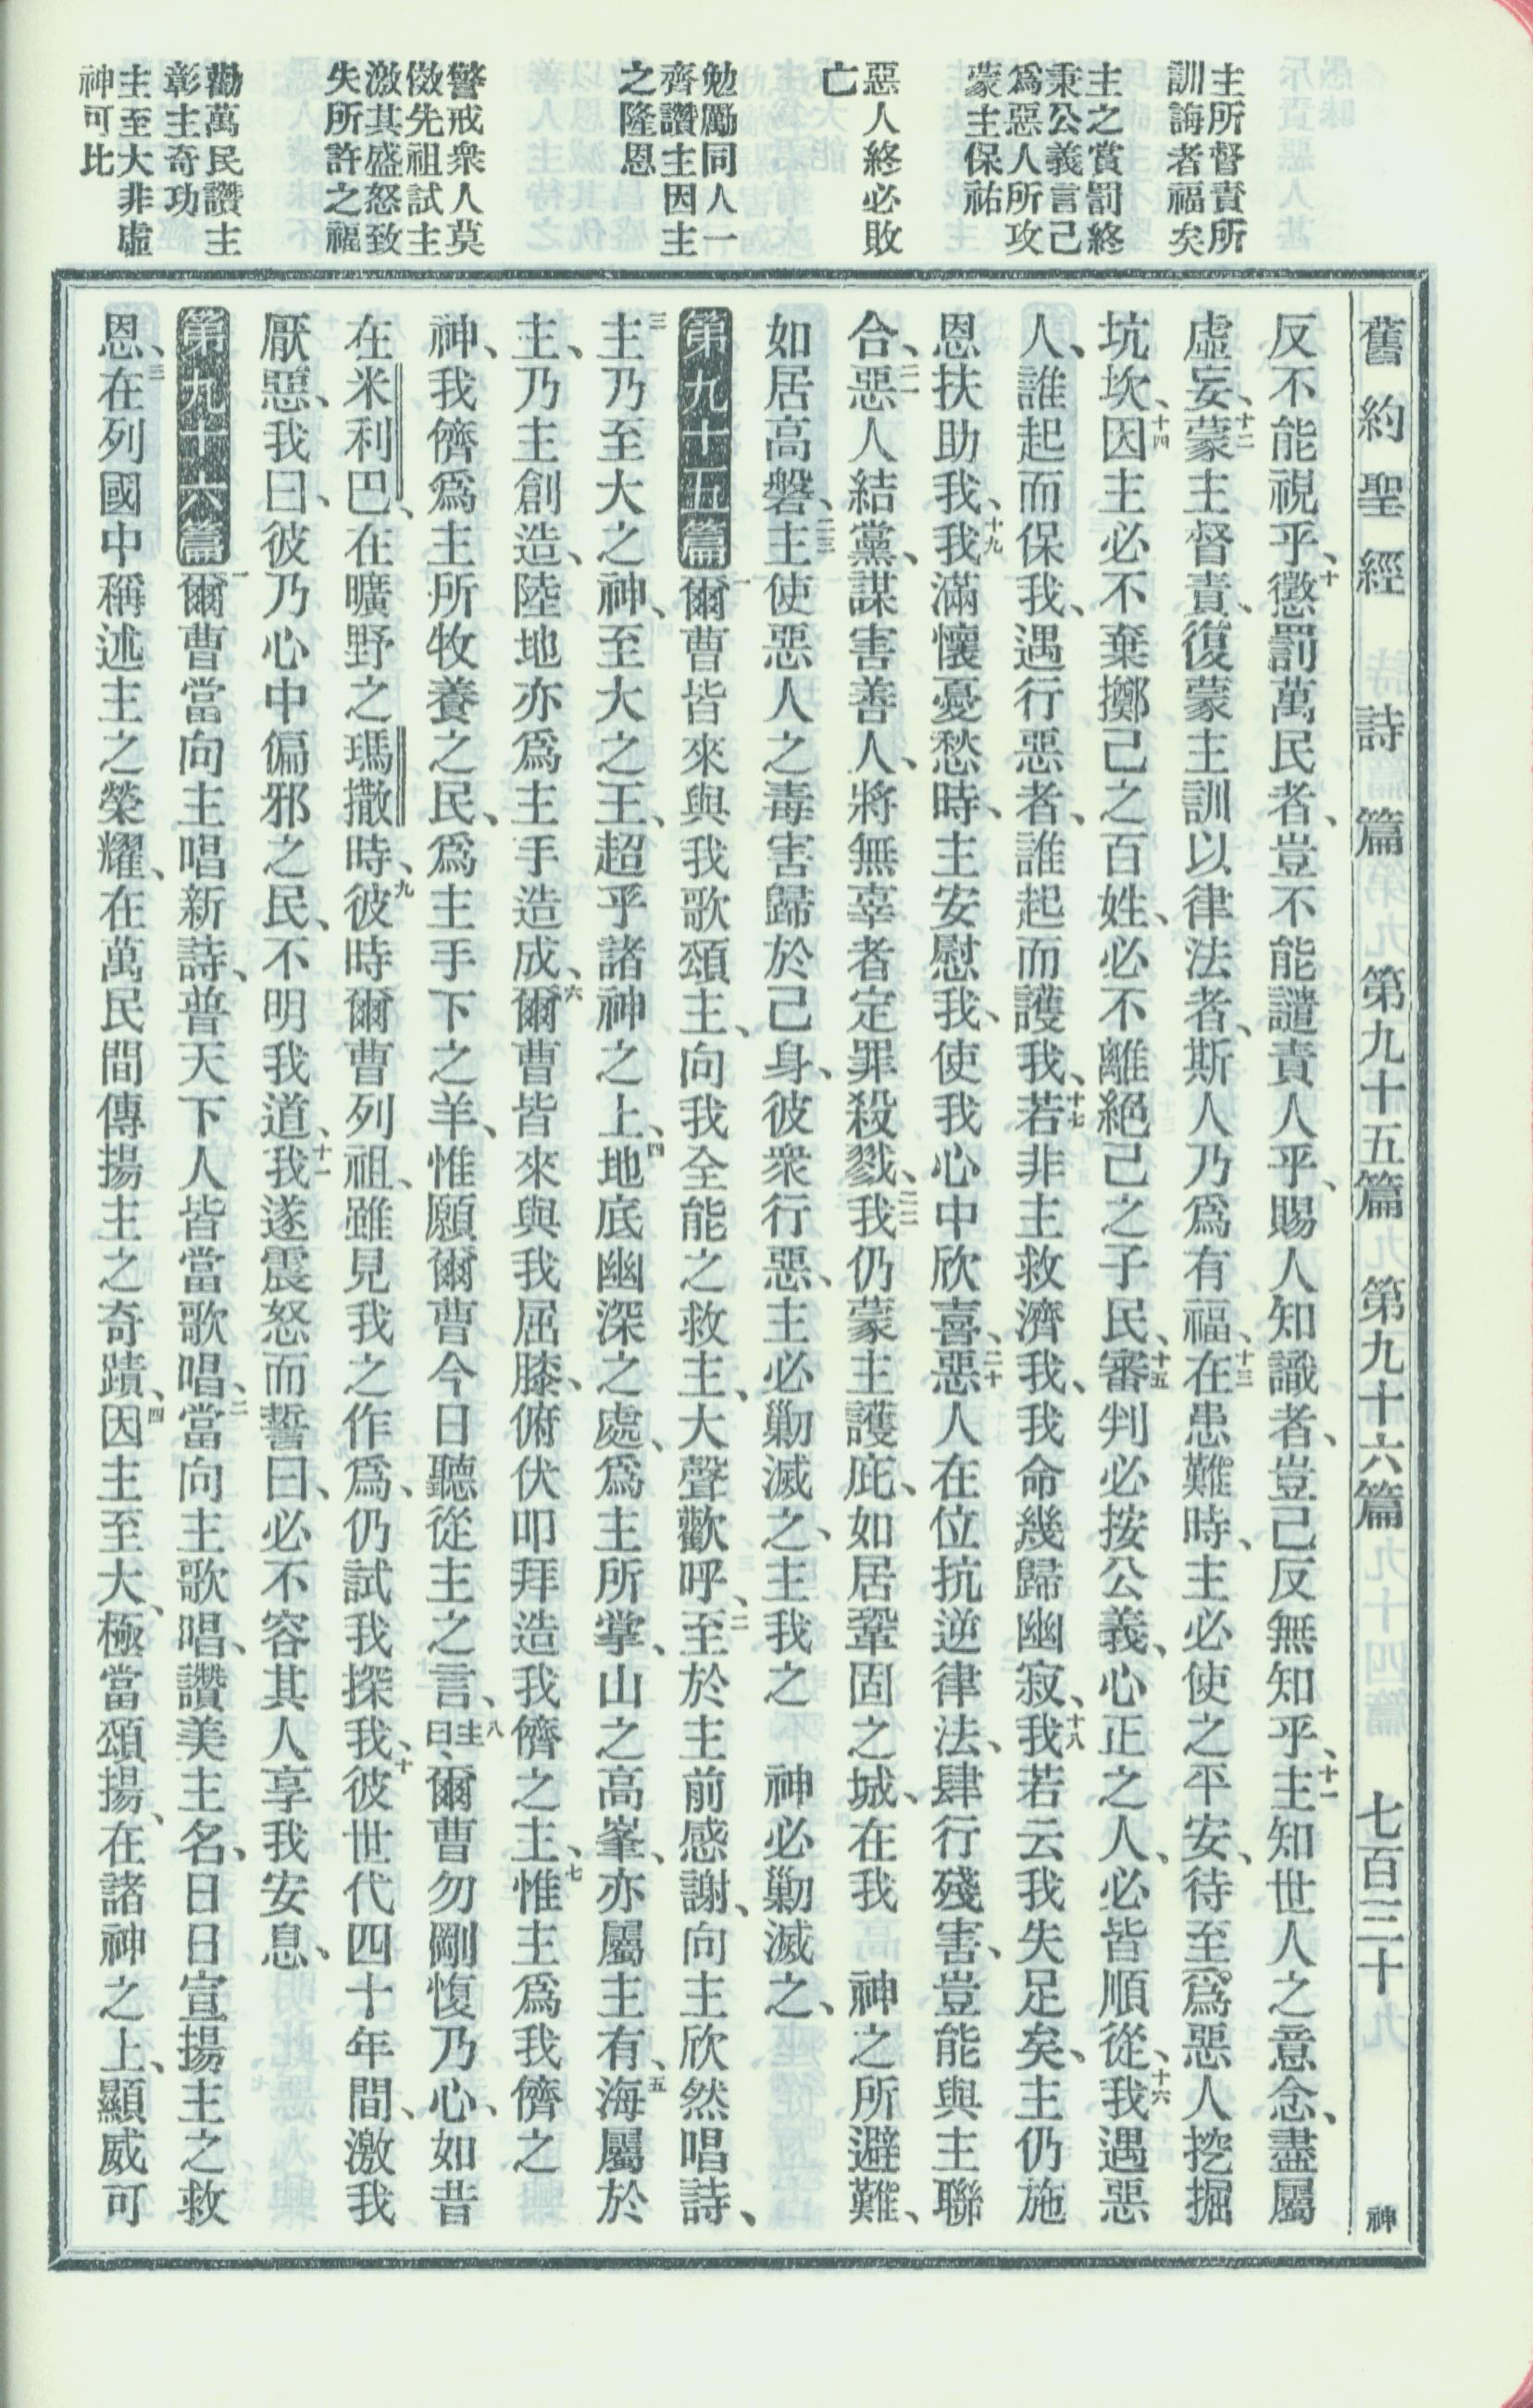 舊約聖經 詩篇 第九十五篇 第九十六篇 七百三十 神
主所督責所
訓誨者福矣
主之賞罰終
秉公義言己
爲惡人所攻
蒙主保祐
惡人終必敗
亡
勉勵同人一
齊讚主因主
之隆恩
警戒衆人莫
傚先祖試主
激其盛怒致
失所許之福
勸萬民讚主
彰主奇功
主至大非虛
神可比
反不能視乎、十懲罰萬民者、豈不能譴責人乎、賜人知識者、豈己反無知乎、十一主知世人之意念、盡屬
虛妄、十二蒙主督責、復蒙主訓以律法者、斯人乃爲有福、十三在患難時、主必使之平安、待至爲惡人挖掘
坑坎、十四因主必不棄擲己之百姓、必不離絕己之子民、十五審判必按公義、心正之人、必皆順從、十六我遇惡
人、誰起而保我、遇行惡者、誰起而護我、十七若非主救濟我、我命幾歸幽寂、十八我若云我失足矣、主仍施
恩扶助我、十九我滿懷憂愁時、主安慰我、使我心中欣喜、二十惡人在位抗逆律法、肆行殘害、豈能與主聯
合、二一惡人結黨、謀害善人、將無辜者定罪殺戮、二二我仍蒙主護庇、如居鞏固之城、在我 神之所避難、
如居高磐、二三主使惡人之毒害歸於己身、彼衆行惡、主必勦滅之、主我之 神必勦滅之、
第九十五篇 一爾曹皆來與我歌頌主、向我全能之救主、大聲歡呼、二至於主前感謝、向主欣然唱詩、
三主乃至大之神、至大之王、超乎諸神之上、四地底幽深之處、爲主所掌、山之高峯、亦屬主有、五海屬於
主、乃主創造、陸地亦爲主手造成、六爾曹皆來與我屈膝、俯伏叩拜造我儕之主、七惟主爲我儕之
神、我儕爲主所牧養之民、爲主手下之羊、惟願爾曹今日聽從主之言、八主曰、爾曹勿剛愎乃心、如昔
在米利巴、在曠野之瑪撒時、九彼時爾曹列祖、雖見我之作爲、仍試我探我、十彼世代四十年間、激我
厭惡、我曰、彼乃心中偏邪之民、不明我道、十一我遂震怒而誓曰、必不容其人享我安息、
第九十六篇 一爾曹當向主唱新詩、普天下人皆當歌唱、二當向主歌唱、讚美主名、日日宣揚主之救
恩、三在列國中稱述主之榮耀、在萬民間傳揚主之奇蹟、四因主至大、極當頌揚、在諸神之上、顯威可